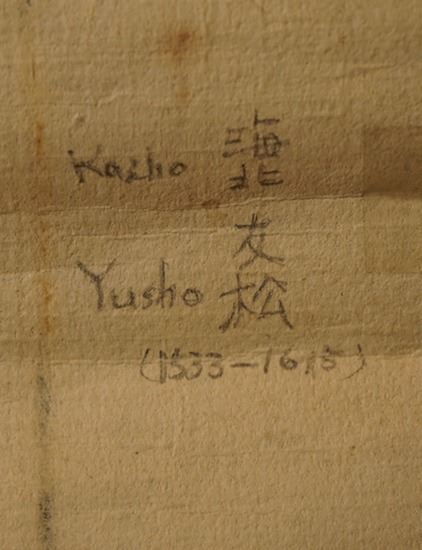 Kaiho 海北
Yusho 友松
(1533-1615)